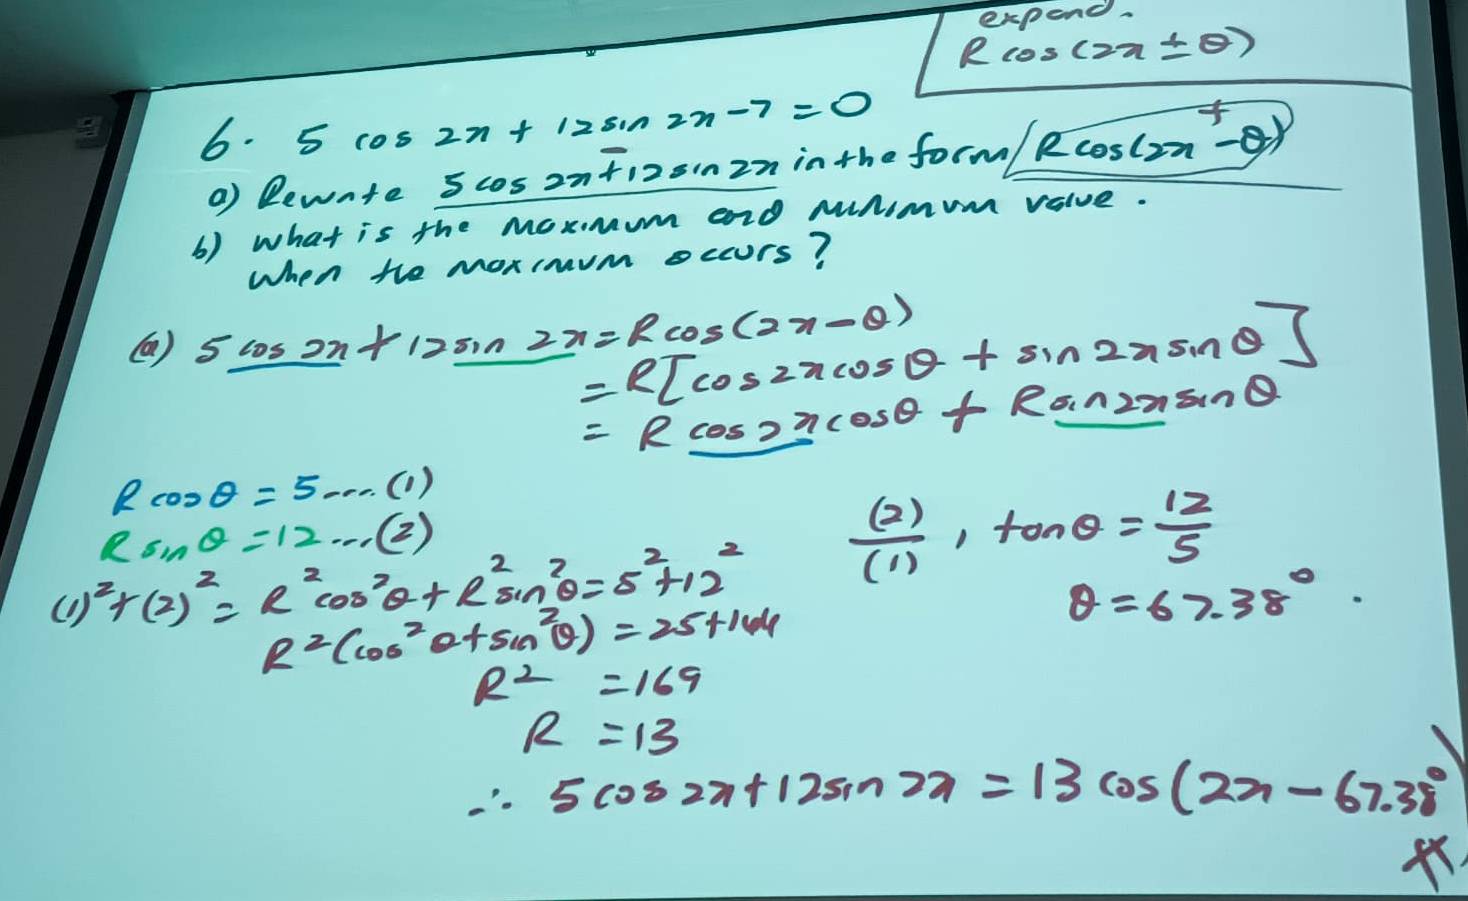 expand.
R cos (2x ± θ)
6. 5 cos 2x + 12 sin 2x - 7 = 0
a) Rewrite 5 cos 2x + 12 sin 2x in the form R cos(2x - θ) +
b) What is the maximum and minimum value.
When the maximum occurs?
(a) 5 cos 2x + 12 sin 2x = R cos (2x - θ)
= R[cos 2x cos θ + sin 2x sin θ]
= R cos 2x cos θ + R sin 2x sin θ
R cos θ = 5 .... (1)
R sin θ = 12 ... (2)
(2)/(1), tan θ = 12/5
θ = 67.38°.
(1)² + (2)² = R² cos² θ + R² sin² θ = 5² + 12²
R² (cos² θ + sin² θ) = 25 + 144
R² = 169
R = 13
∴ 5 cos 2x + 12 sin 2x = 13 cos (2x - 67.38°)